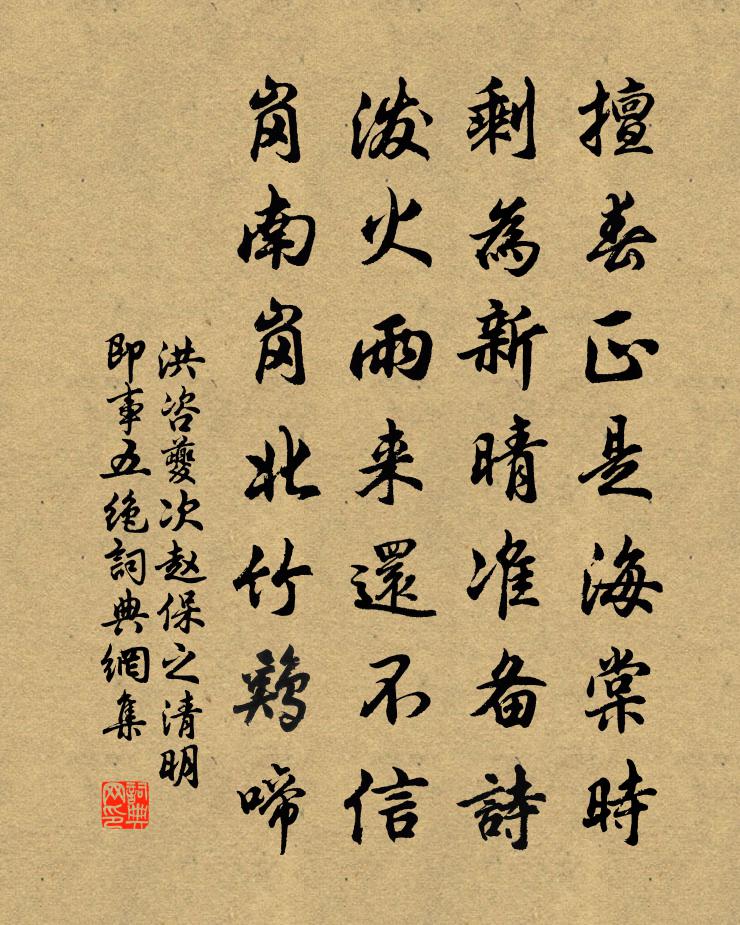 擅春正是海棠時
剩為新晴准备詩
泼火雨来還不信
岗南岗北竹鷄啼
洪咨夔次赵保之清明
即事五绝詞典網集
詞典网印